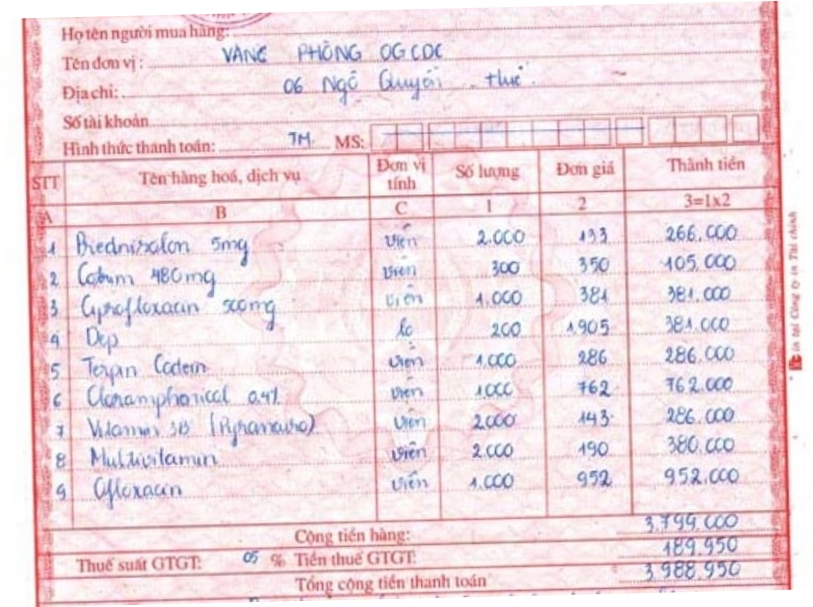 Họ tên người mua hàng:
Tên đơn vị: VĂNG PHÒNG OGCDC
Địa chỉ: 06 Ngô Quyền Huế
Số tài khoản
Hình thức thanh toán: TM. MS:
STT Tên hàng hoá, dịch vụ Đơn vị tính Số lượng Đơn giá Thành tiền
A B C 1 2 3=1x2
1 Brednisolon 5mg viên 2.000 133 266.000
2 Cotrim 480mg viên 300 350 105.000
3 Ciprofloxacin 500mg viên 1.000 381 381.000
4 Dep lọ 200 1.905 381.000
5 Terpin Codein viên 1.000 286 286.000
6 Cloramphonical 0.4% viên 1.000 762 762.000
7 Vitamin 3B viên 2000 143 286.000
8 Multivitamin viên 2.000 190 380.000
9 Ofloxacin viên 1.000 952 952.000
Cộng tiền hàng: 3.799.000
Thuế suất GTGT: 05 % Tiền thuế GTGT: 189.950
Tổng cộng tiền thanh toán 3.988.950
in tại Công ty in Tài chính